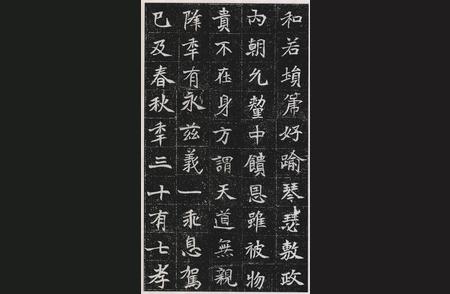 和若塤箎好踰琴瑟敷政
內朝允釐中饋恩雖被物
貴不在身方謂天道無親
降秊有永兹義一乖息駕
巳及春秋秊三十有七孝